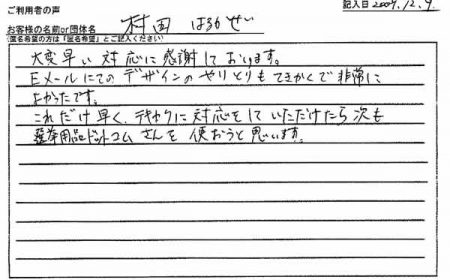 ご利用者の声
記入日 2009.12.9
お客様の名前or団体名 村国 はるひぜ
(匿名希望の方は「匿名希望」とご記入ください)
大変早い対応に感謝しております。
Eメールにてのデザインのやりとりもてきかくで非常に
よかったです。
これだけ早く、テキカクに対応をしていただけたら次も
選挙用品ドットコムさんを使おうと思います。